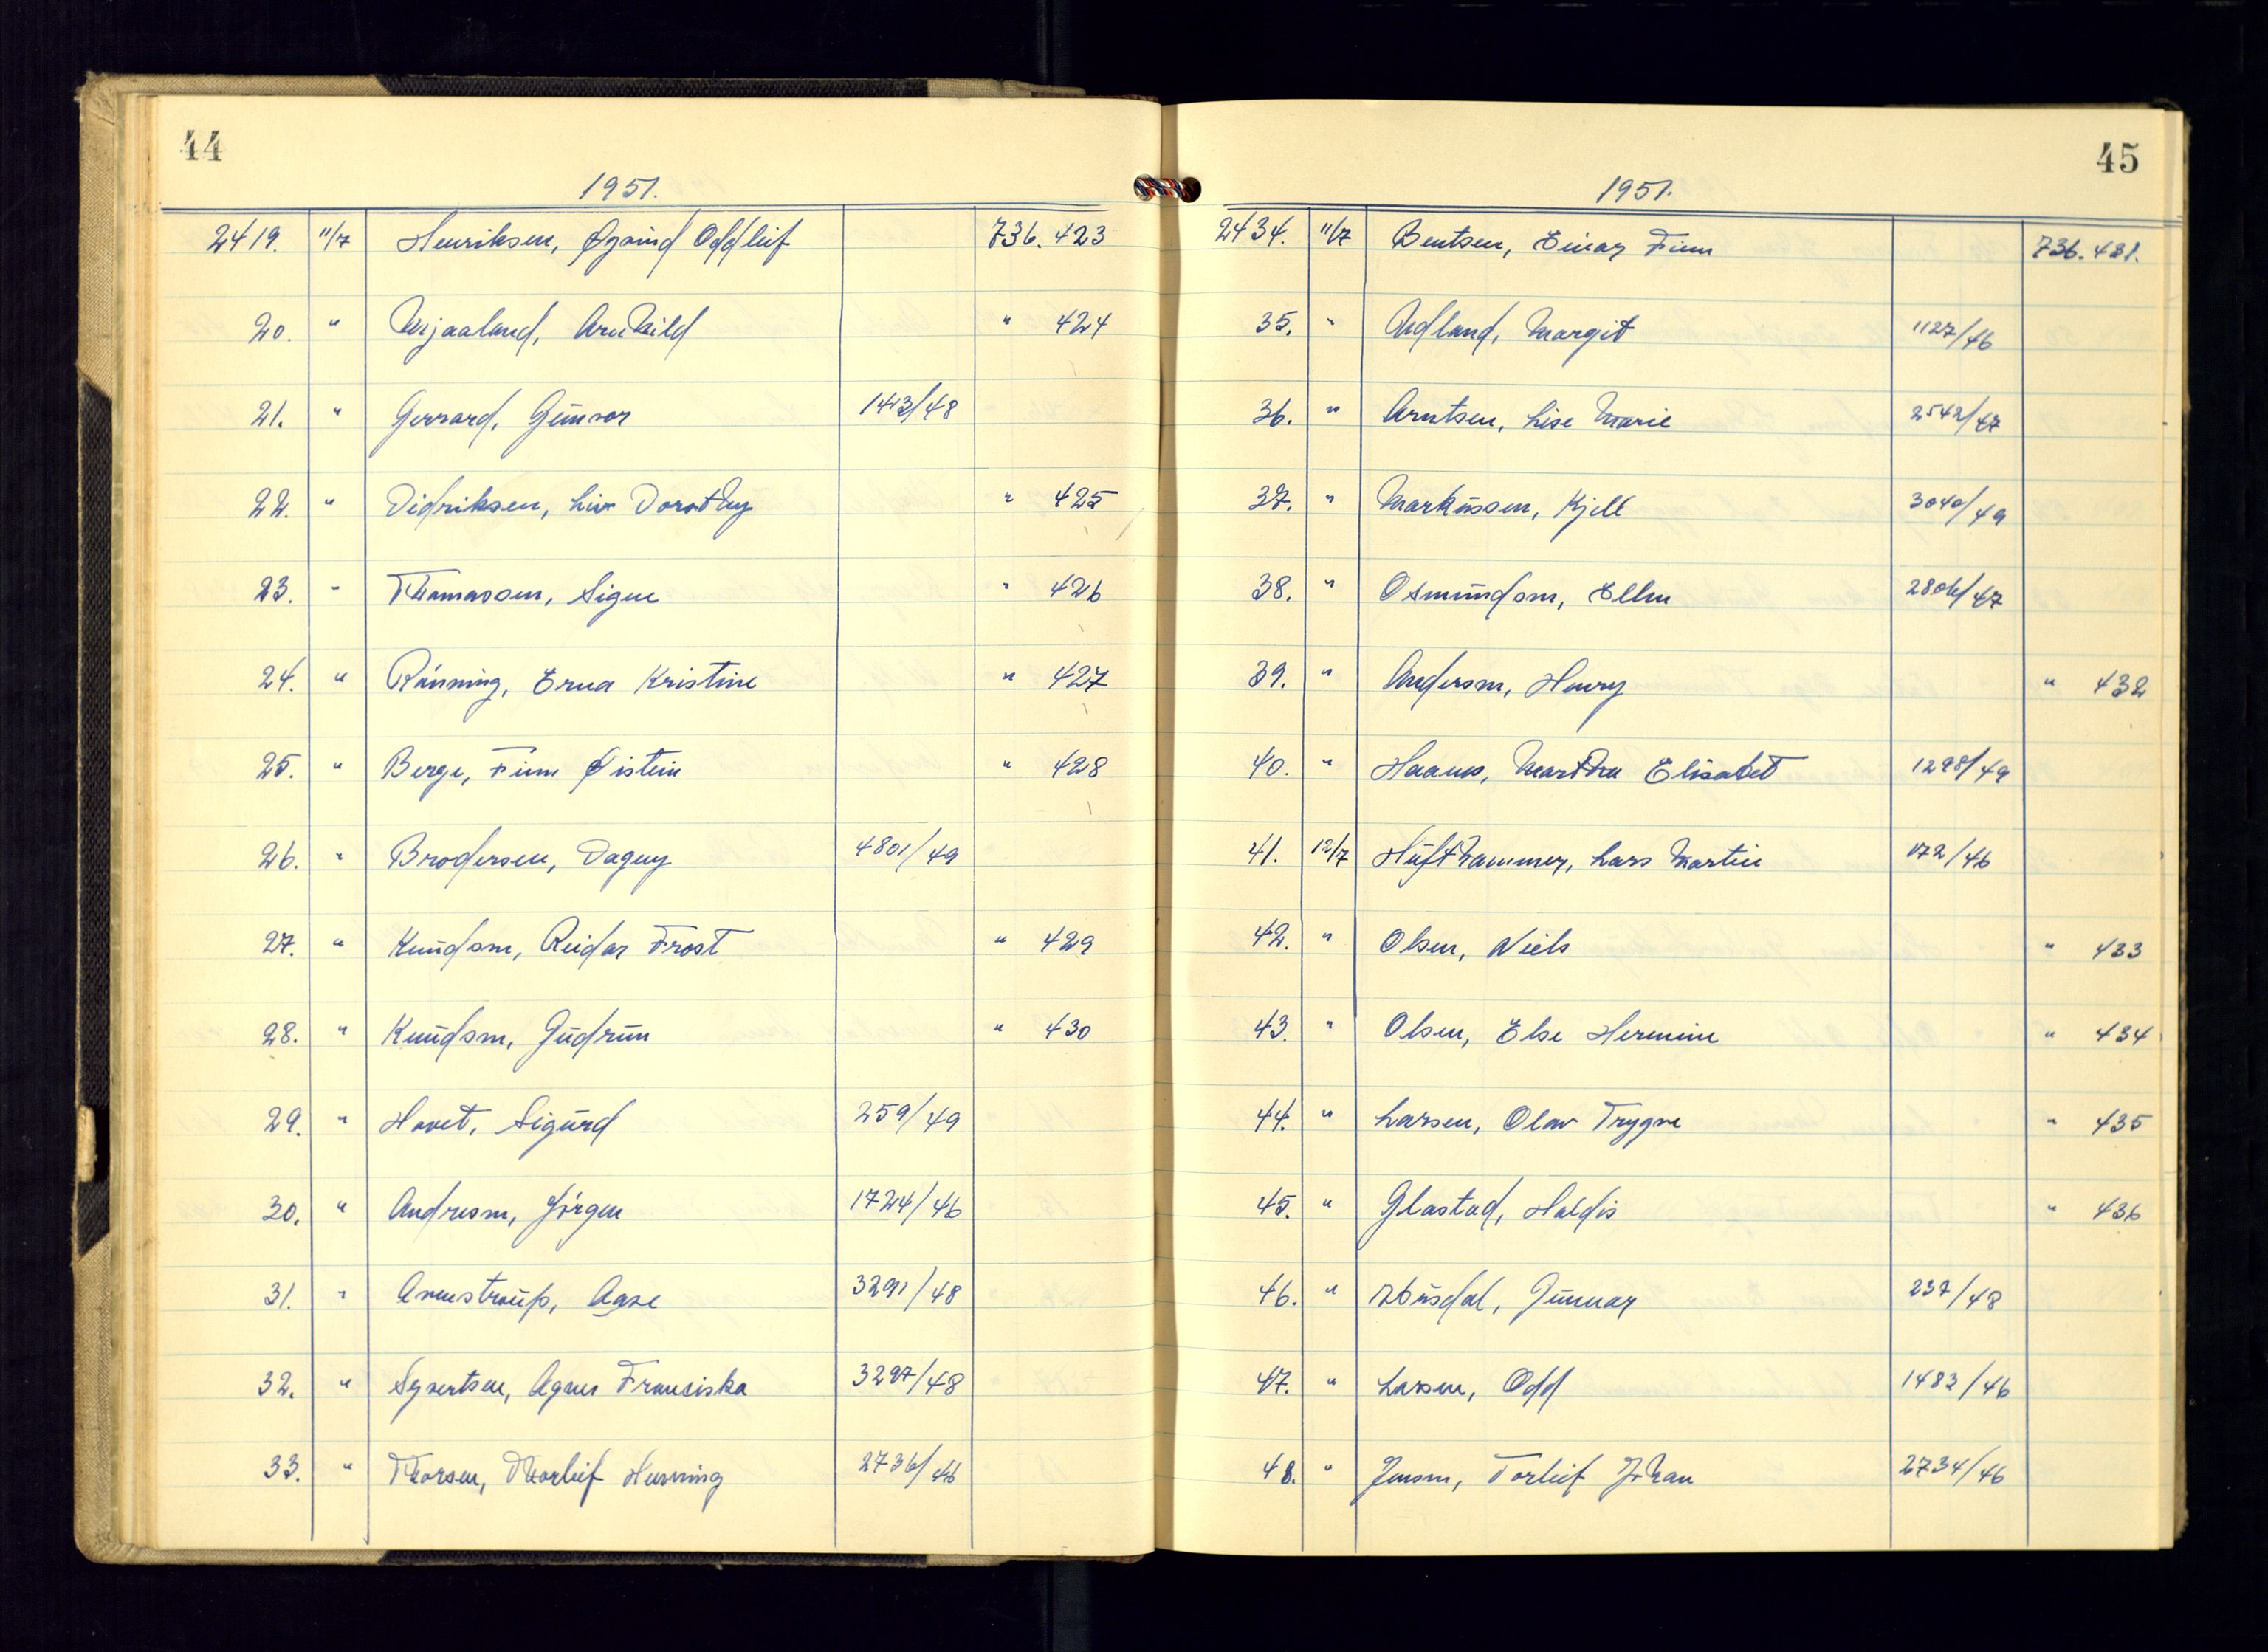 44
1951.
2419. 11/7 Henriksen, Øyvind Oddleif 736. 423
20. " Mjaaland, Arnhild " 424
21. " Gervard, Gunvor 1413/48
22. " Didriksen, Liv Dorothy " 425
23. " Thomassen, Signe " 426
24. " Rönning, Erna Kristine " 427
25. " Berge, Finn Øistein " 428
26. " Brodersen, Dagny 4801/49
27. " Knudsen, Reidar Frost " 429
28. " Knudsen, Gudrun " 430
29. " Hovet, Sigurd 259/49
30. " Andresen, Jörgen 1724/46
31. " Arenstroup, Aase 3291/48
32. " Syvertsen, Agnes Franciska 3297/48
33. " Thorsen, Thorleif Henning 2736/46
45
1951.
2434. 11/7 Bentsen, Einar Finn 736. 431.
35. " Udland, Margit 1127/46
36. " Arntsen, Lise Marie 2542/47
37. " Markussen, Kjell 3040/49
38. " Osmundsen, Ellen 2806/47
39. " Andersen, Henry " 432
40. " Haaus, Martha Elisabet 1298/49
41. 12/7 Hufthammer, Lars Martin 172/46
42. " Olsen, Niels " 433
43. " Olsen, Else Hermine " 434
44. " Larsen, Olav Trygve " 435
45. " Glastad, Haldis " 436
46. " Gunnar 237/48
47. " Larsen, Odd 1483/46
48. " Jensen, Torleif Johan 2734/46